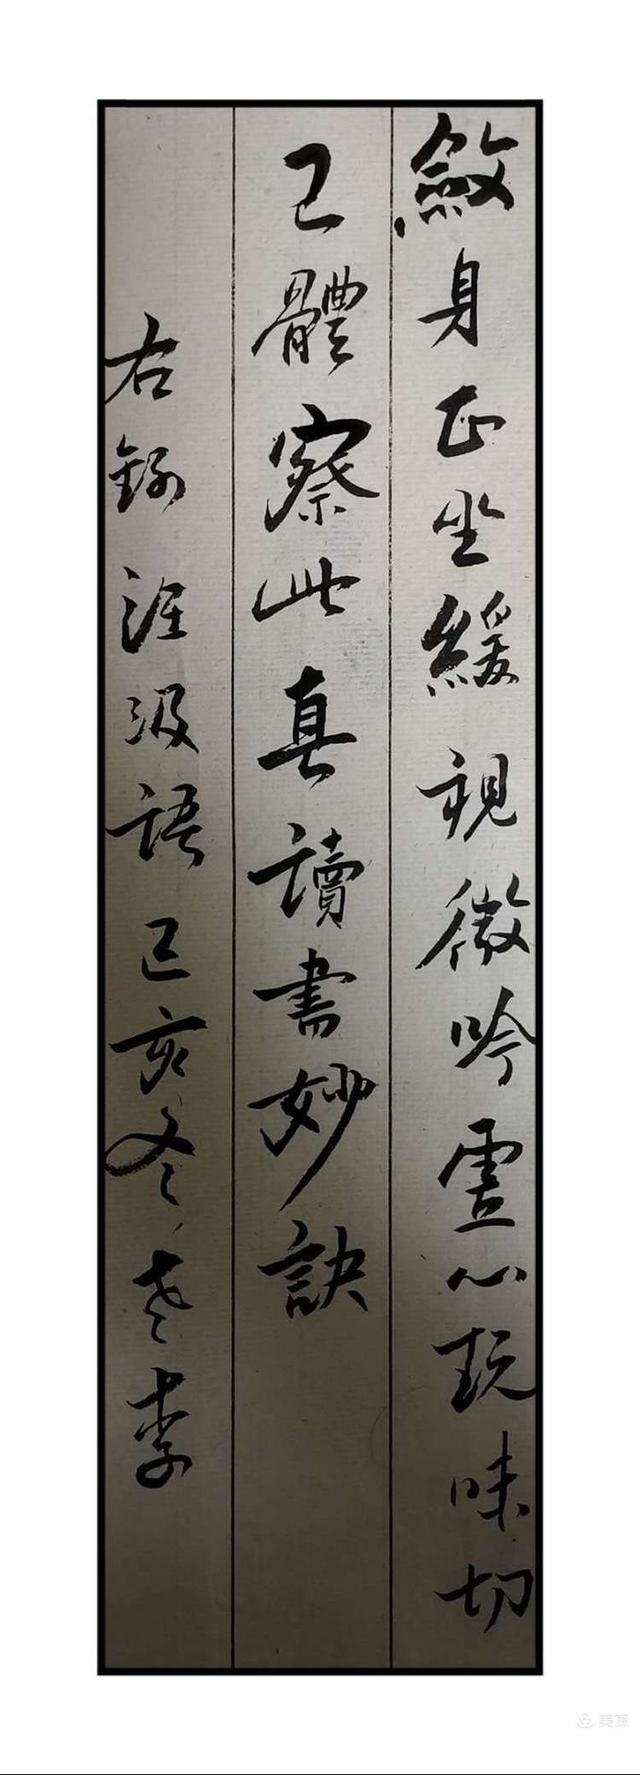 斂身正坐緩視微吟虛心玩味切
己體察此真讀書妙訣
右錄汲語己亥冬老李
美篇